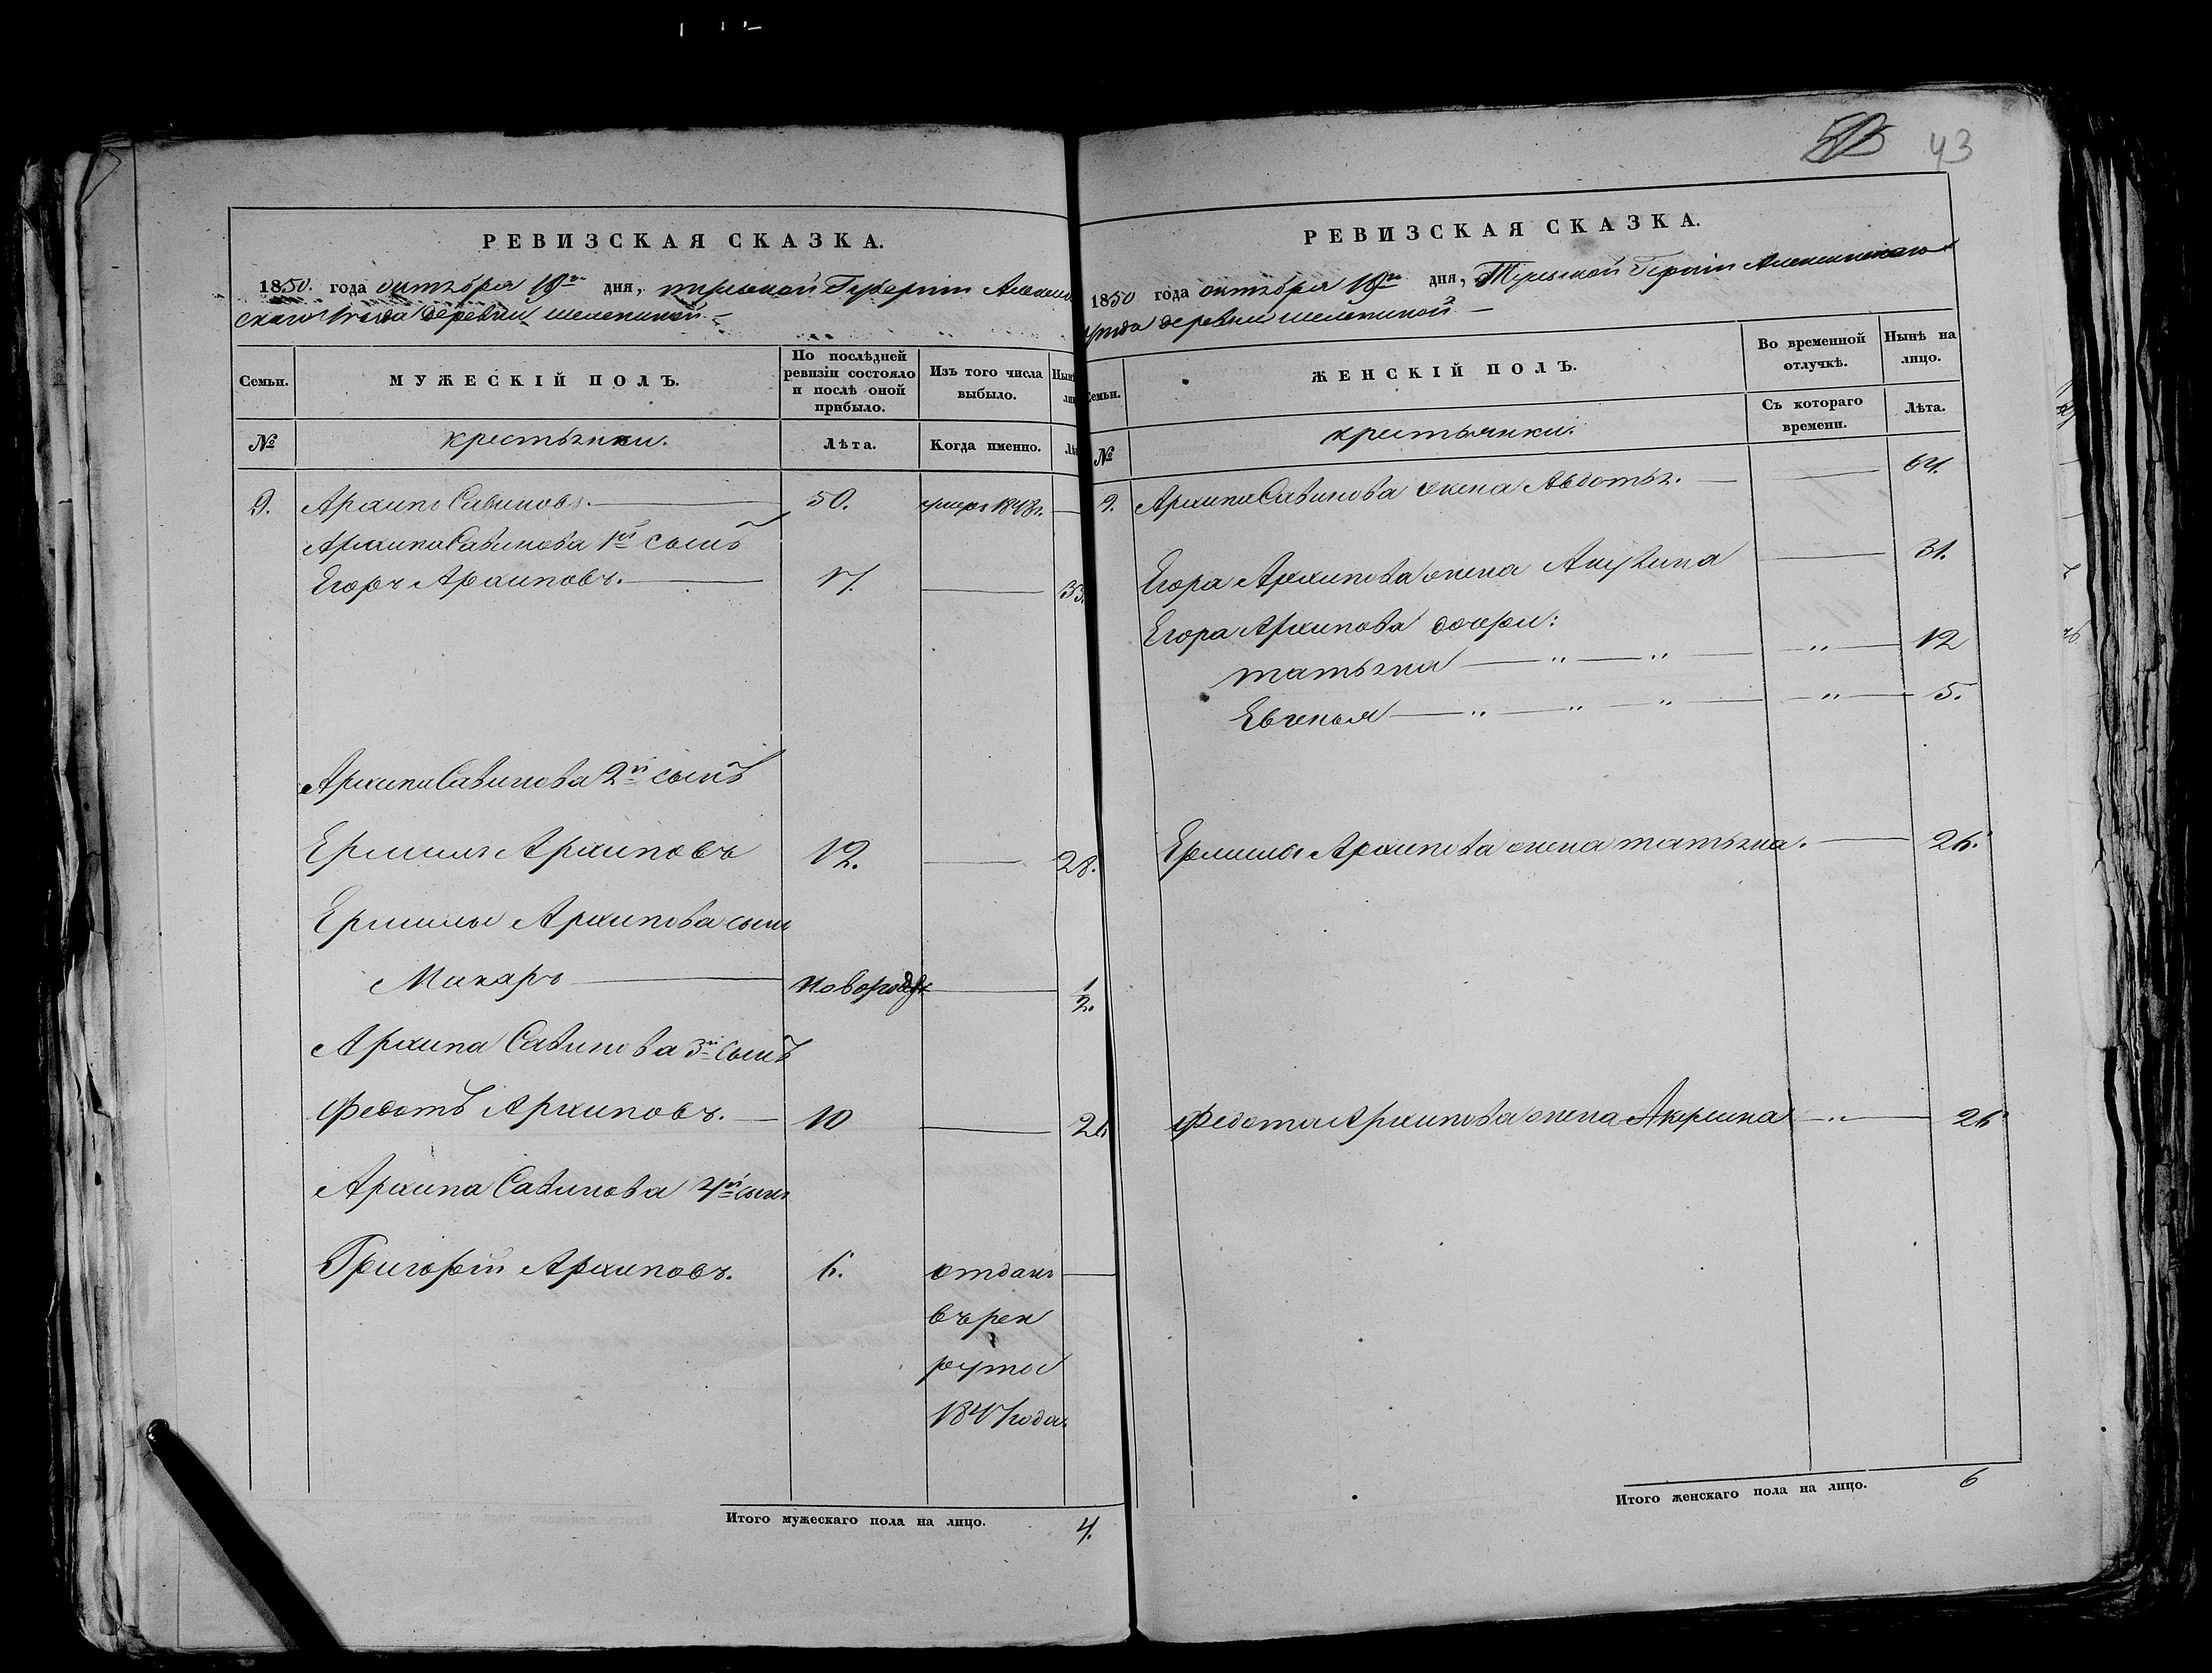 43
РЕВИЗСКАЯ СКАЗКА.
1850. года октября 19го дня, тульской Губерніи Алексин
скаго Уезда деревни шелепиной
Семьи.
МУЖЕСКІЙ ПОЛЪ.
По послѣдней ревизіи состояло и послѣ оной прибыло.
Изъ того числа выбыло.
№
крестьяни.
Лѣта.
Когда именно.
9. Архипъ Савиновъ. 50. 1848г.
Архипа Савинова 1й сынъ
Егоръ Архиповъ. 17. 33.
Архипа Савинова 2й сынъ
Ермилъ Архиповъ 12. 28.
Ермилы Архипова сынъ
Макаръ новорожд 1/2.
Архипа Савинова 3й сынъ
Федотъ Архиповъ. 10 26
Архипа Савинова 4й сынъ
Григорій Архиповъ. 6. отданъ
въ рек
руты
1847 года.
Итого мужескаго пола на лицо. 4.
РЕВИЗСКАЯ СКАЗКА.
1850 года октября 19го дня, Тульской Губерніи Алексинскаго
уезда деревни шелепиной
Семьи.
ЖЕНСКІЙ ПОЛЪ.
Во временной отлучкѣ.
Нынѣ на лицо.
Съ котораго времени.
Лѣта.
№
крестьянки.
9. Архипа Савинова жена Авдотья. 64.
Егора Архипова жена Акулина 31.
Егора Архипова дочери:
татьяна 12
Евгенья 5.
Ермилы Архипова жена татьяна. 26.
Федота Архипова жена Акулина 26
Итого женскаго пола на лицо. 6